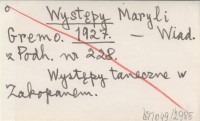 Występy Maryli
Gremo. 1927. — Wiad.
z Podh. nr 228.
Występy taneczne w
Zakopanem.